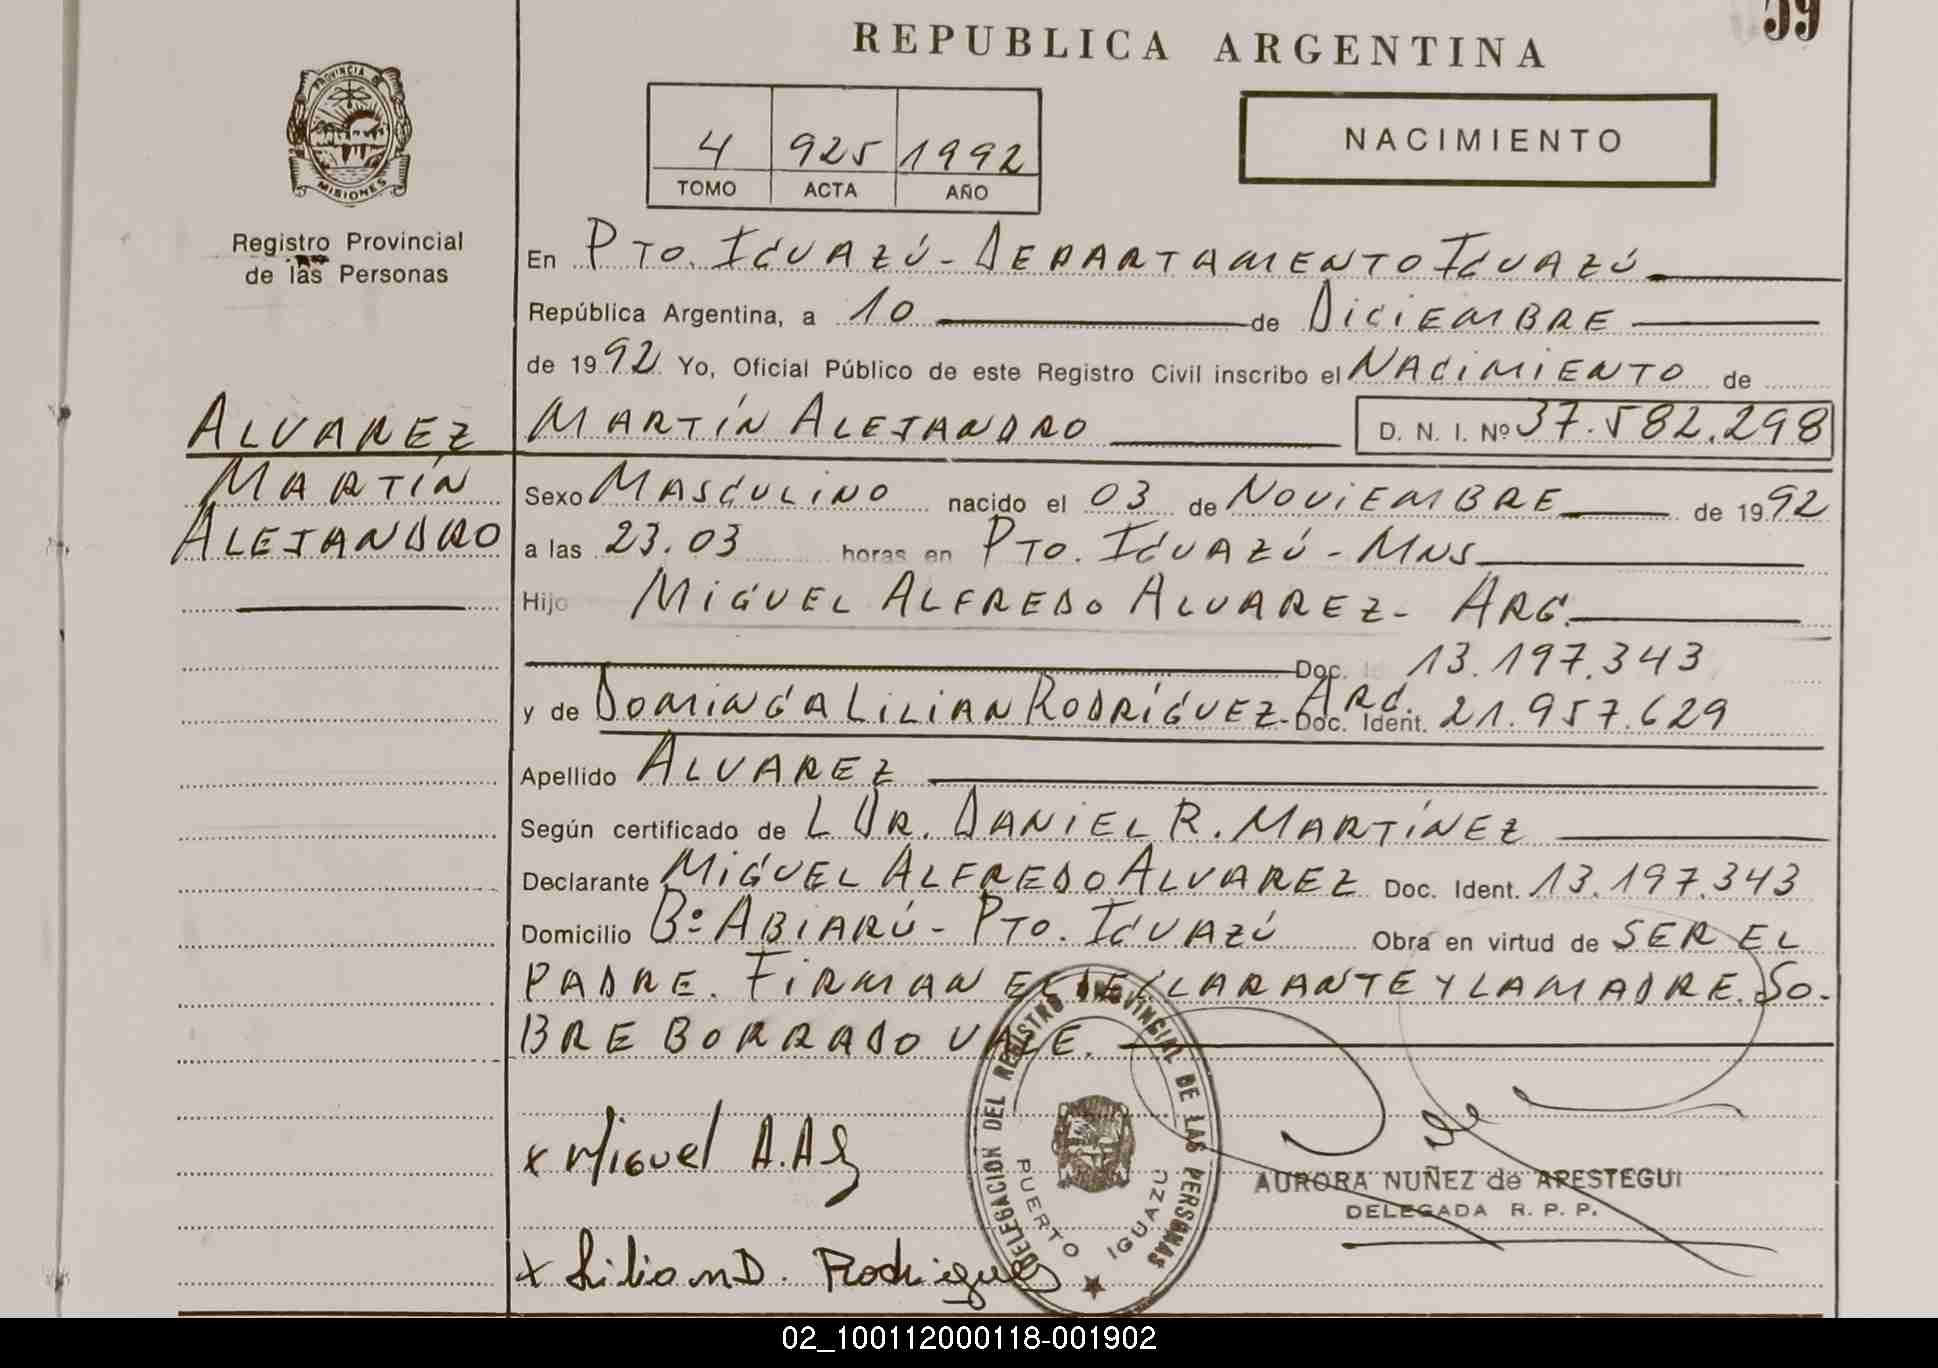 59
REPUBLICA ARGENTINA
PROVINCIA DE
MISIONES
Registro Provincial
de las Personas
4 925 1992
TOMO ACTA AÑO
NACIMIENTO
En PTO. IGUAZÚ - DEPARTAMENTO IGUAZÚ
República Argentina, a 10 de DICIEMBRE
de 1992 Yo, Oficial Público de este Registro Civil inscribo el NACIMIENTO de
ALVAREZ
MARTÍN
ALEJANDRO
MARTÍN ALEJANDRO D. N. I. Nº 37.582.298
Sexo MASCULINO nacido el 03 de NOVIEMBRE de 1992
a las 23.03 horas en PTO. IGUAZÚ - MNS
Hijo MIGUEL ALFREDO ALVAREZ - ARG.
Doc. 13.197.343
y de DOMINGA LILIAN RODRÍGUEZ - ARG. Doc. Ident. 21.957.629
Apellido ALVAREZ
Según certificado de L DR. DANIEL R. MARTÍNEZ
Declarante MIGUEL ALFREDO ALVAREZ Doc. Ident. 13.197.343
Domicilio Bº ABIARÚ - PTO. IGUAZÚ Obra en virtud de SER EL
PADRE. FIRMAN EL DECLARANTE Y LA MADRE. SO-
BRE BORRADO VALE.
x Miguel A. Al
x Lilian D. Rodriguez
DELEGACION DEL REGISTRO PROVINCIAL DE LAS PERSONAS
PUERTO IGUAZU
AURORA NUÑEZ de ARESTEGUI
DELEGADA R. P. P.
02_100112000118-001902